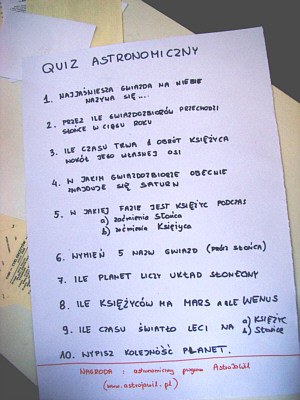 QUIZ ASTRONOMICZNY
1. NAJJAŚNIEJSZA GWIAZDA NA NIEBIE
NAZYWA SIĘ ....
2. PRZEZ ILE GWIAZDOZBIORÓW PRZECHODZI
SŁOŃCE W CIĄGU ROKU
3. ILE CZASU TRWA 1 OBRÓT KSIĘŻYCA
WOKÓŁ JEGO WŁASNEJ OSI
4. W JAKIM GWIAZDOZBIORZE OBECNIE
ZNAJDUJE SIĘ SATURN
5. W JAKIEJ FAZIE JEST KSIĘŻYC PODCZAS
a) zaćmienia Słońca
b) zaćmienia Księżyca
6. WYMIEŃ 5 NAZW GWIAZD (prócz Słońca)
7. ILE PLANET LICZY UKŁAD SŁONECZNY
8. ILE KSIĘŻYCÓW MA MARS A ILE WENUS
9. ILE CZASU ŚWIATŁO LECI NA a) KSIĘŻYC
b) Słońce
10. WYPISZ KOLEJNOŚĆ PLANET.
NAGRODA : astronomiczny program AstroJaWil
(www.astrojawil.pl)